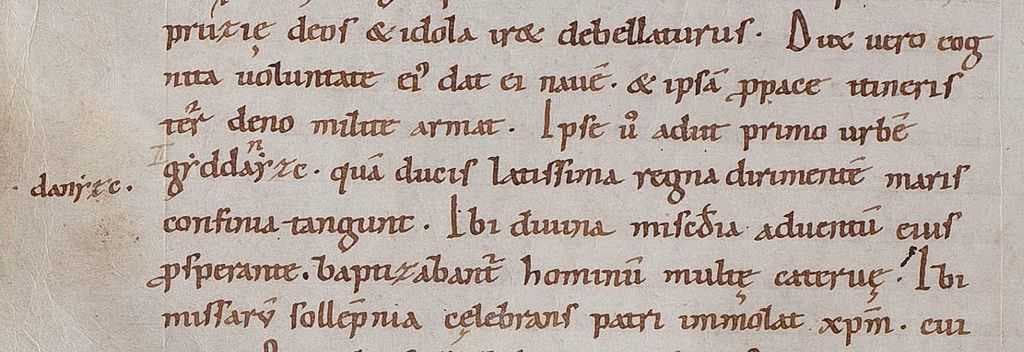 pruzię deos & idola iræ debellaturus. Dux vero cog
nita uoluntate ei⁹ dat ei nauē. & ipsā ꝓ pace itineris
ter̄ deno milite armat. Ipse ů adiit primo urbē
gẏddanẏzc. quā ducis latissima regna dirimentē maris
· danẏzc.
confinia tangunt. Ibi diuina misc̄dia aduentū eius
ꝓsperante. baptizabant̄ hominū multę cateruę. Ibi
missarū sollēpnia cęlebrans patri immolat xp̄m. cui